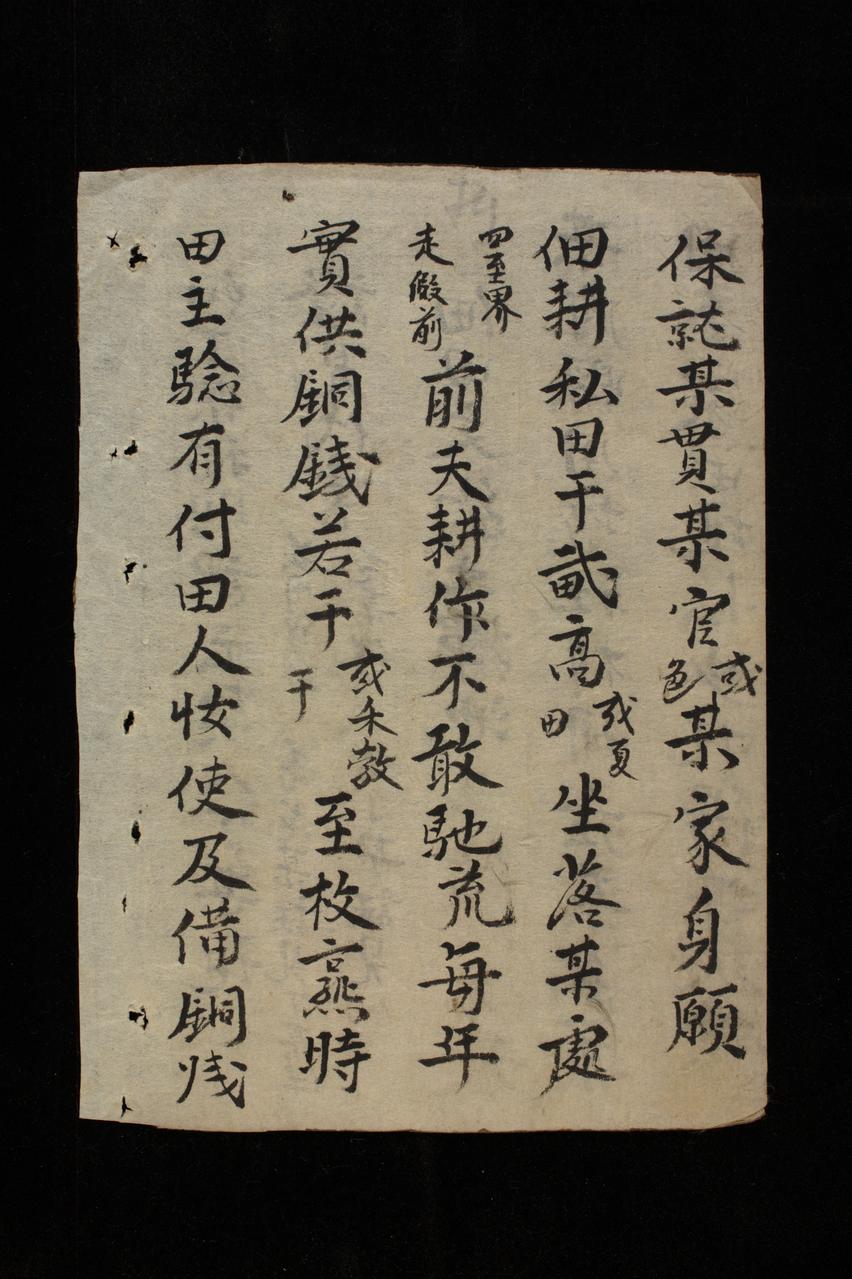 保就某貫某官或色某家身願
佃耕私田干畝高或夏田坐落某處
四至界走假前前夫耕作不敢馳荒每年
實供銅錢若干或禾教干至枚熹時
田主驗有付田人收使及備銅戋